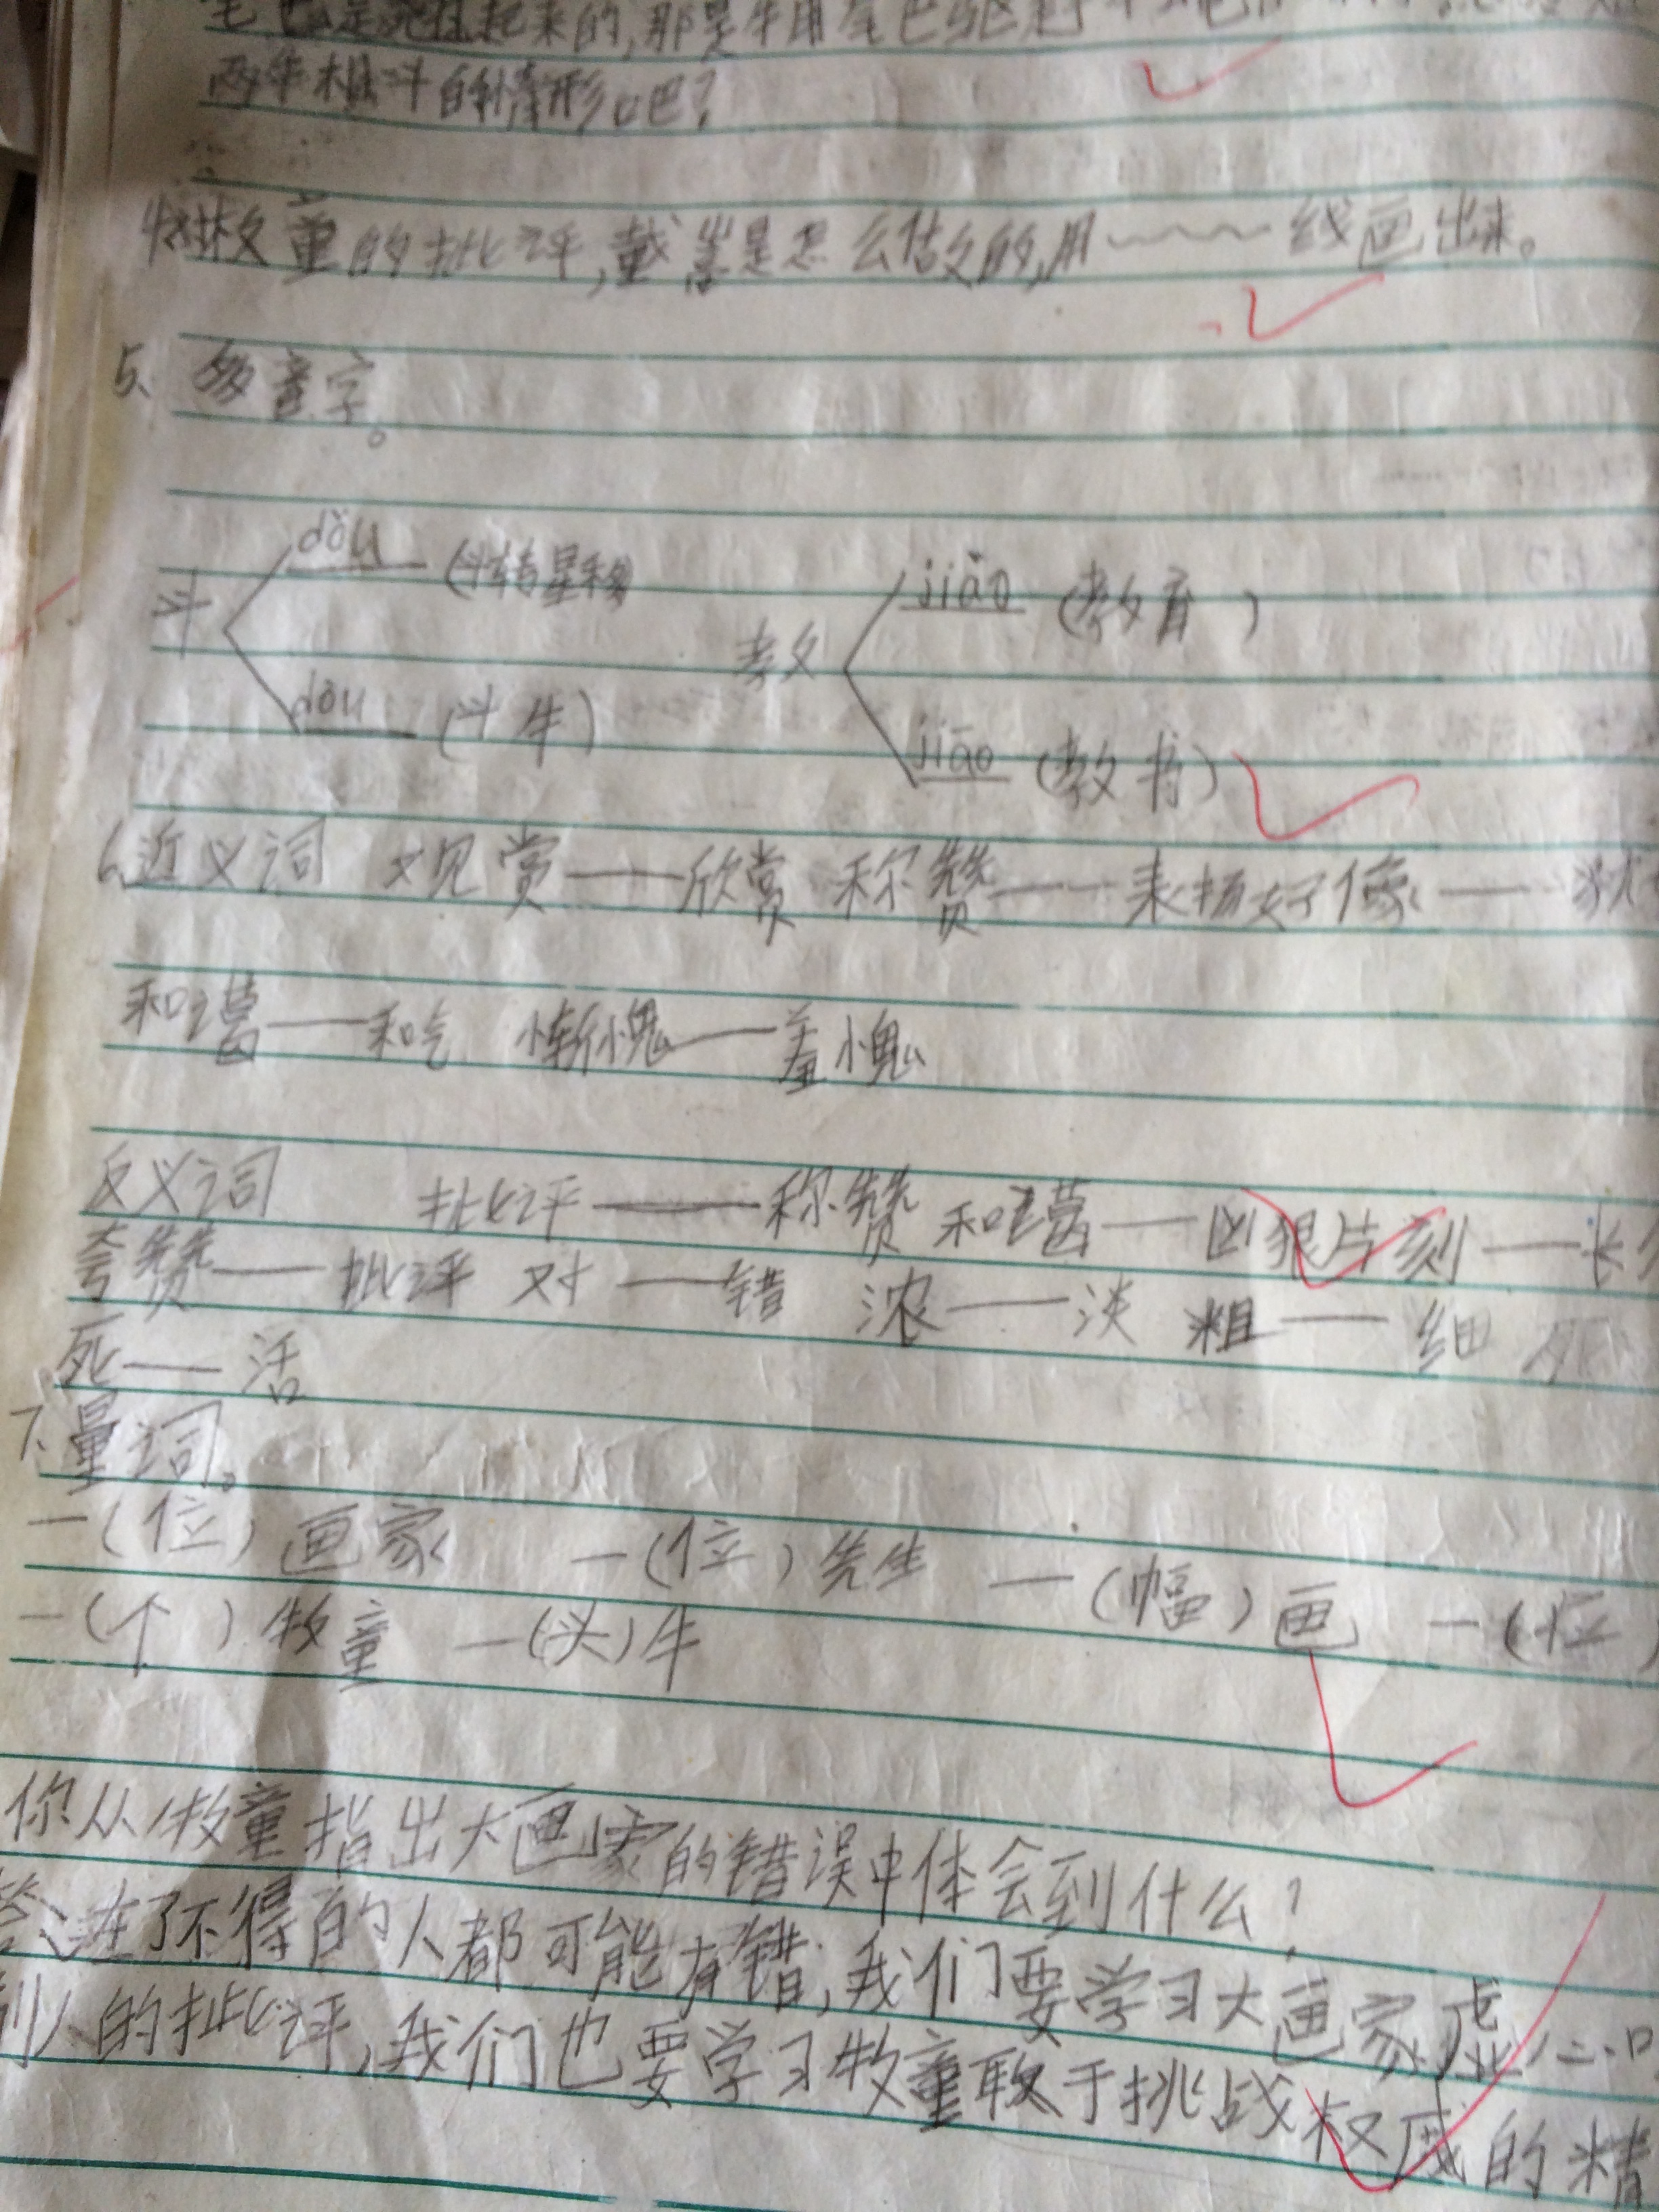 两牛相斗的情形吧？
牧童的批评，戴嵩是怎么做的，用﹏﹏﹏线画出来。
5、多音字。
斗 dǒu (斗转星移 教 jiāo (教育)
dòu (斗牛) jiāo (教书)
6、近义词 观赏——欣赏 称赞——表扬 好像——
和蔼——和气 惭愧——羞愧
反义词 批评——称赞 和蔼——凶狠 片刻——长
夸赞——批评 对——错 浓——淡 粗——细
死——活
7、量词。
一(位)画家 一(位)先生 一(幅)画 一(位)
一(个)牧童 一(头)牛
你从牧童指出大画家的错误中体会到什么？
答、在了不得的人都可能有错，我们要学习大画家虚心
别人的批评，我们也要学习牧童敢于挑战权威的精